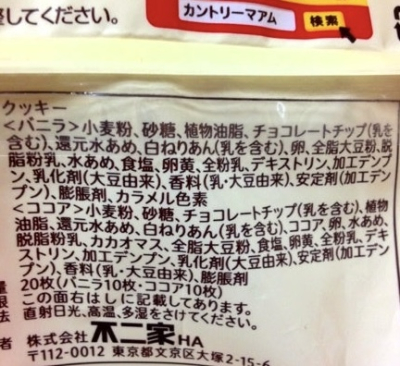 整してください。
カントリーマアム
検索
クッキー
<バニラ>小麦粉、砂糖、植物油脂、チョコレートチップ(乳を
含む)、還元水あめ、白ねりあん(乳を含む)、卵、全脂大豆粉、脱
脂粉乳、水あめ、食塩、卵黄、全粉乳、デキストリン、加工デンプ
ン、乳化剤(大豆由来)、香料(乳・大豆由来)、安定剤(加工デン
プン)、膨脹剤、カラメル色素
<ココア>小麦粉、砂糖、チョコレートチップ(乳を含む)、植物
油脂、還元水あめ、白ねりあん(乳を含む)、ココア、卵、水あめ、
脱脂粉乳、カカオマス、全脂大豆粉、食塩、卵黄、全粉乳、デキ
ストリン、加工デンプン、乳化剤(大豆由来)、安定剤(加工デン
プン)、香料(乳・大豆由来)、膨脹剤
量 20枚(バニラ10枚・ココア10枚)
限 この面右はしに記載してあります。
法 直射日光、高温、多湿をさけてください。
者 株式会社 不二家 HA
〒112-0012 東京都文京区大塚2-15-6